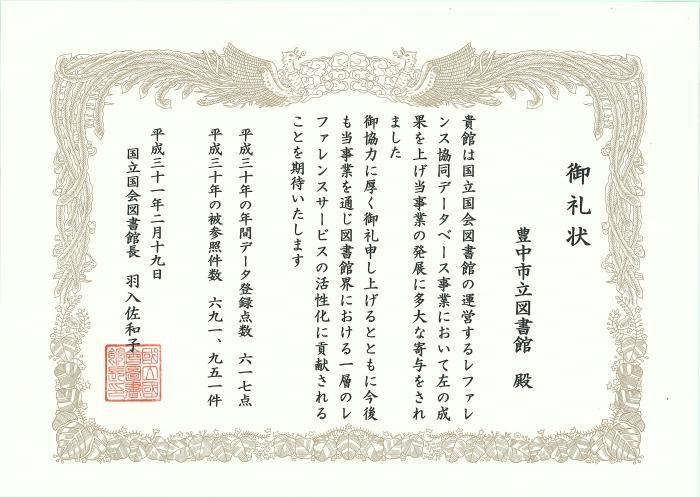 御礼状
豊中市立図書館 殿
貴館は国立国会図書館の運営するレファレ
ンス協同データベース事業において左の成
果を上げ当事業の発展に多大な寄与をされ
ました
御協力に厚く御礼申し上げるとともに今後
も当事業を通じ図書館界における一層のレ
ファレンスサービスの活性化に貢献される
ことを期待いたします
平成三十年の年間データ登録点数 六一七点
平成三十年の被参照件数 六九一、九五一件
平成三十一年二月十九日
国立国会図書館長 羽入佐和子
国立国
会図書
館長印